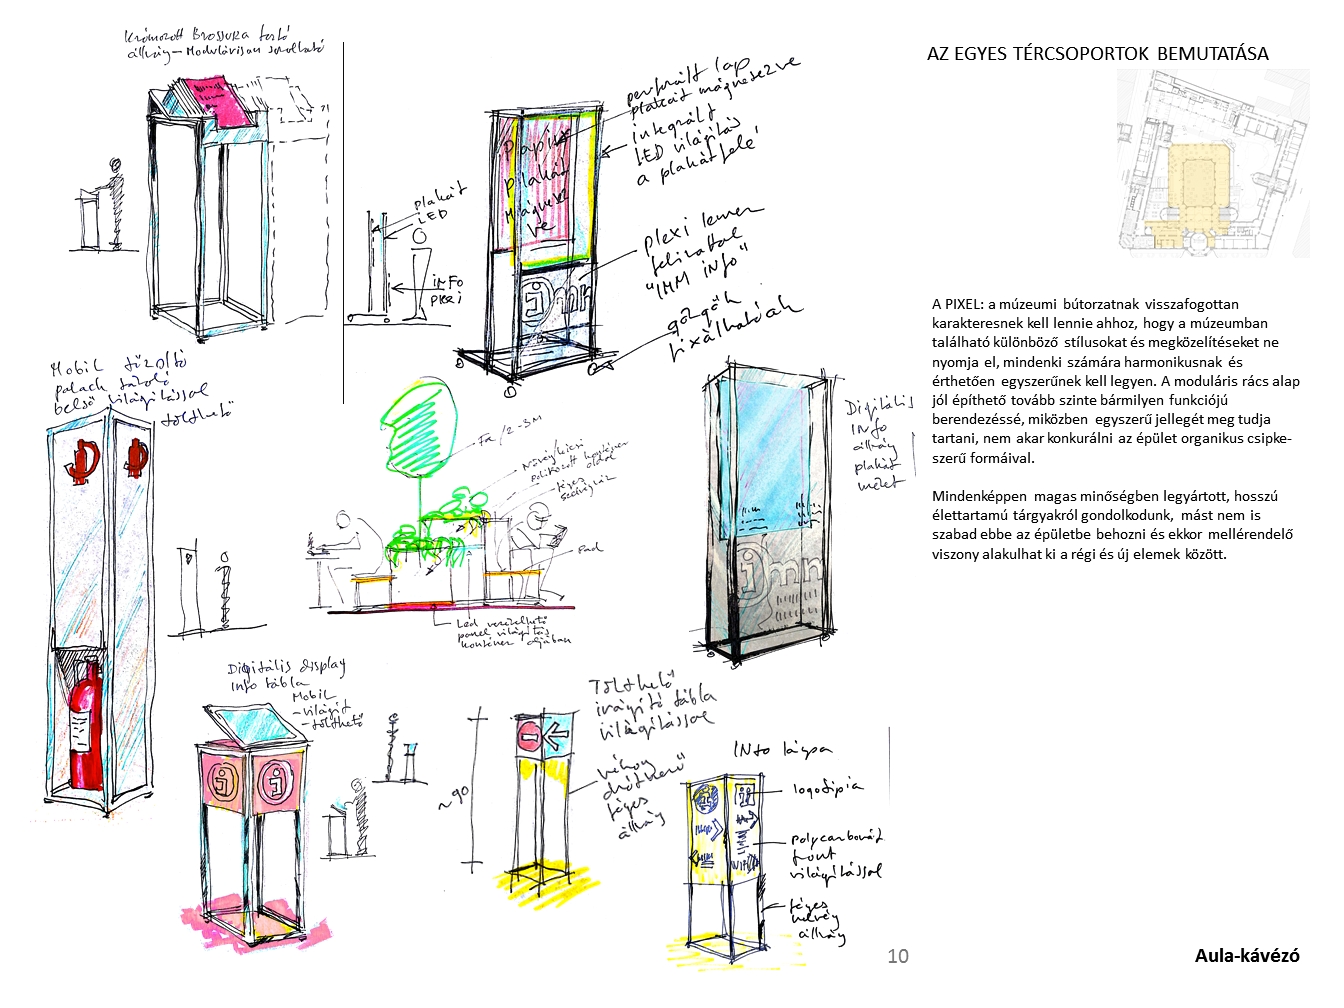 Krómozott Brossura tartó
állvány - Modulárisan sorolható
perforált lap
plakát mágnesezve
integrált
LED világítás
a plakát felé
Papír
plakát
Mágnesez
ve
plakát
LED
INFO
plexi
plexi lemez
felirattal
"IMM INFO"
görgők
fixálhatóak
imm
Mobil tűzoltó
palack tároló
belső világítással
tölthető
Fa / 2-3M
Pad
Led vezérelhető
panel világítás
konténer aljában
Digitális
INFO
állvány
plakát
méret
imm
Digitális display
Info tábla
Mobil
- világít
- tölthető
i i
Tölthető
irányító tábla
világítással
vékony
fényes
állvány
~90
INFO lámpa
logotípia
polycarbonát
front
világítással
fényes
állvány
AZ EGYES TÉRCSOPORTOK BEMUTATÁSA
A PIXEL: a múzeumi bútorzatnak visszafogottan
karakteresnek kell lennie ahhoz, hogy a múzeumban
található különböző stílusokat és megközelítéseket ne
nyomja el, mindenki számára harmonikusnak és
érthetően egyszerűnek kell legyen. A moduláris rács alap
jól építhető tovább szinte bármilyen funkciójú
berendezéssé, miközben egyszerű jellegét meg tudja
tartani, nem akar konkurálni az épület organikus csipke-
szerű formáival.
Mindenképpen magas minőségben legyártott, hosszú
élettartamú tárgyakról gondolkodunk, mást nem is
szabad ebbe az épületbe behozni és ekkor mellérendelő
viszony alakulhat ki a régi és új elemek között.
10
Aula-kávézó